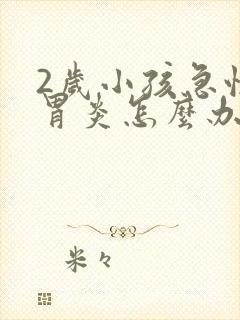 2歲小孩急性
胃炎怎麼办
米々